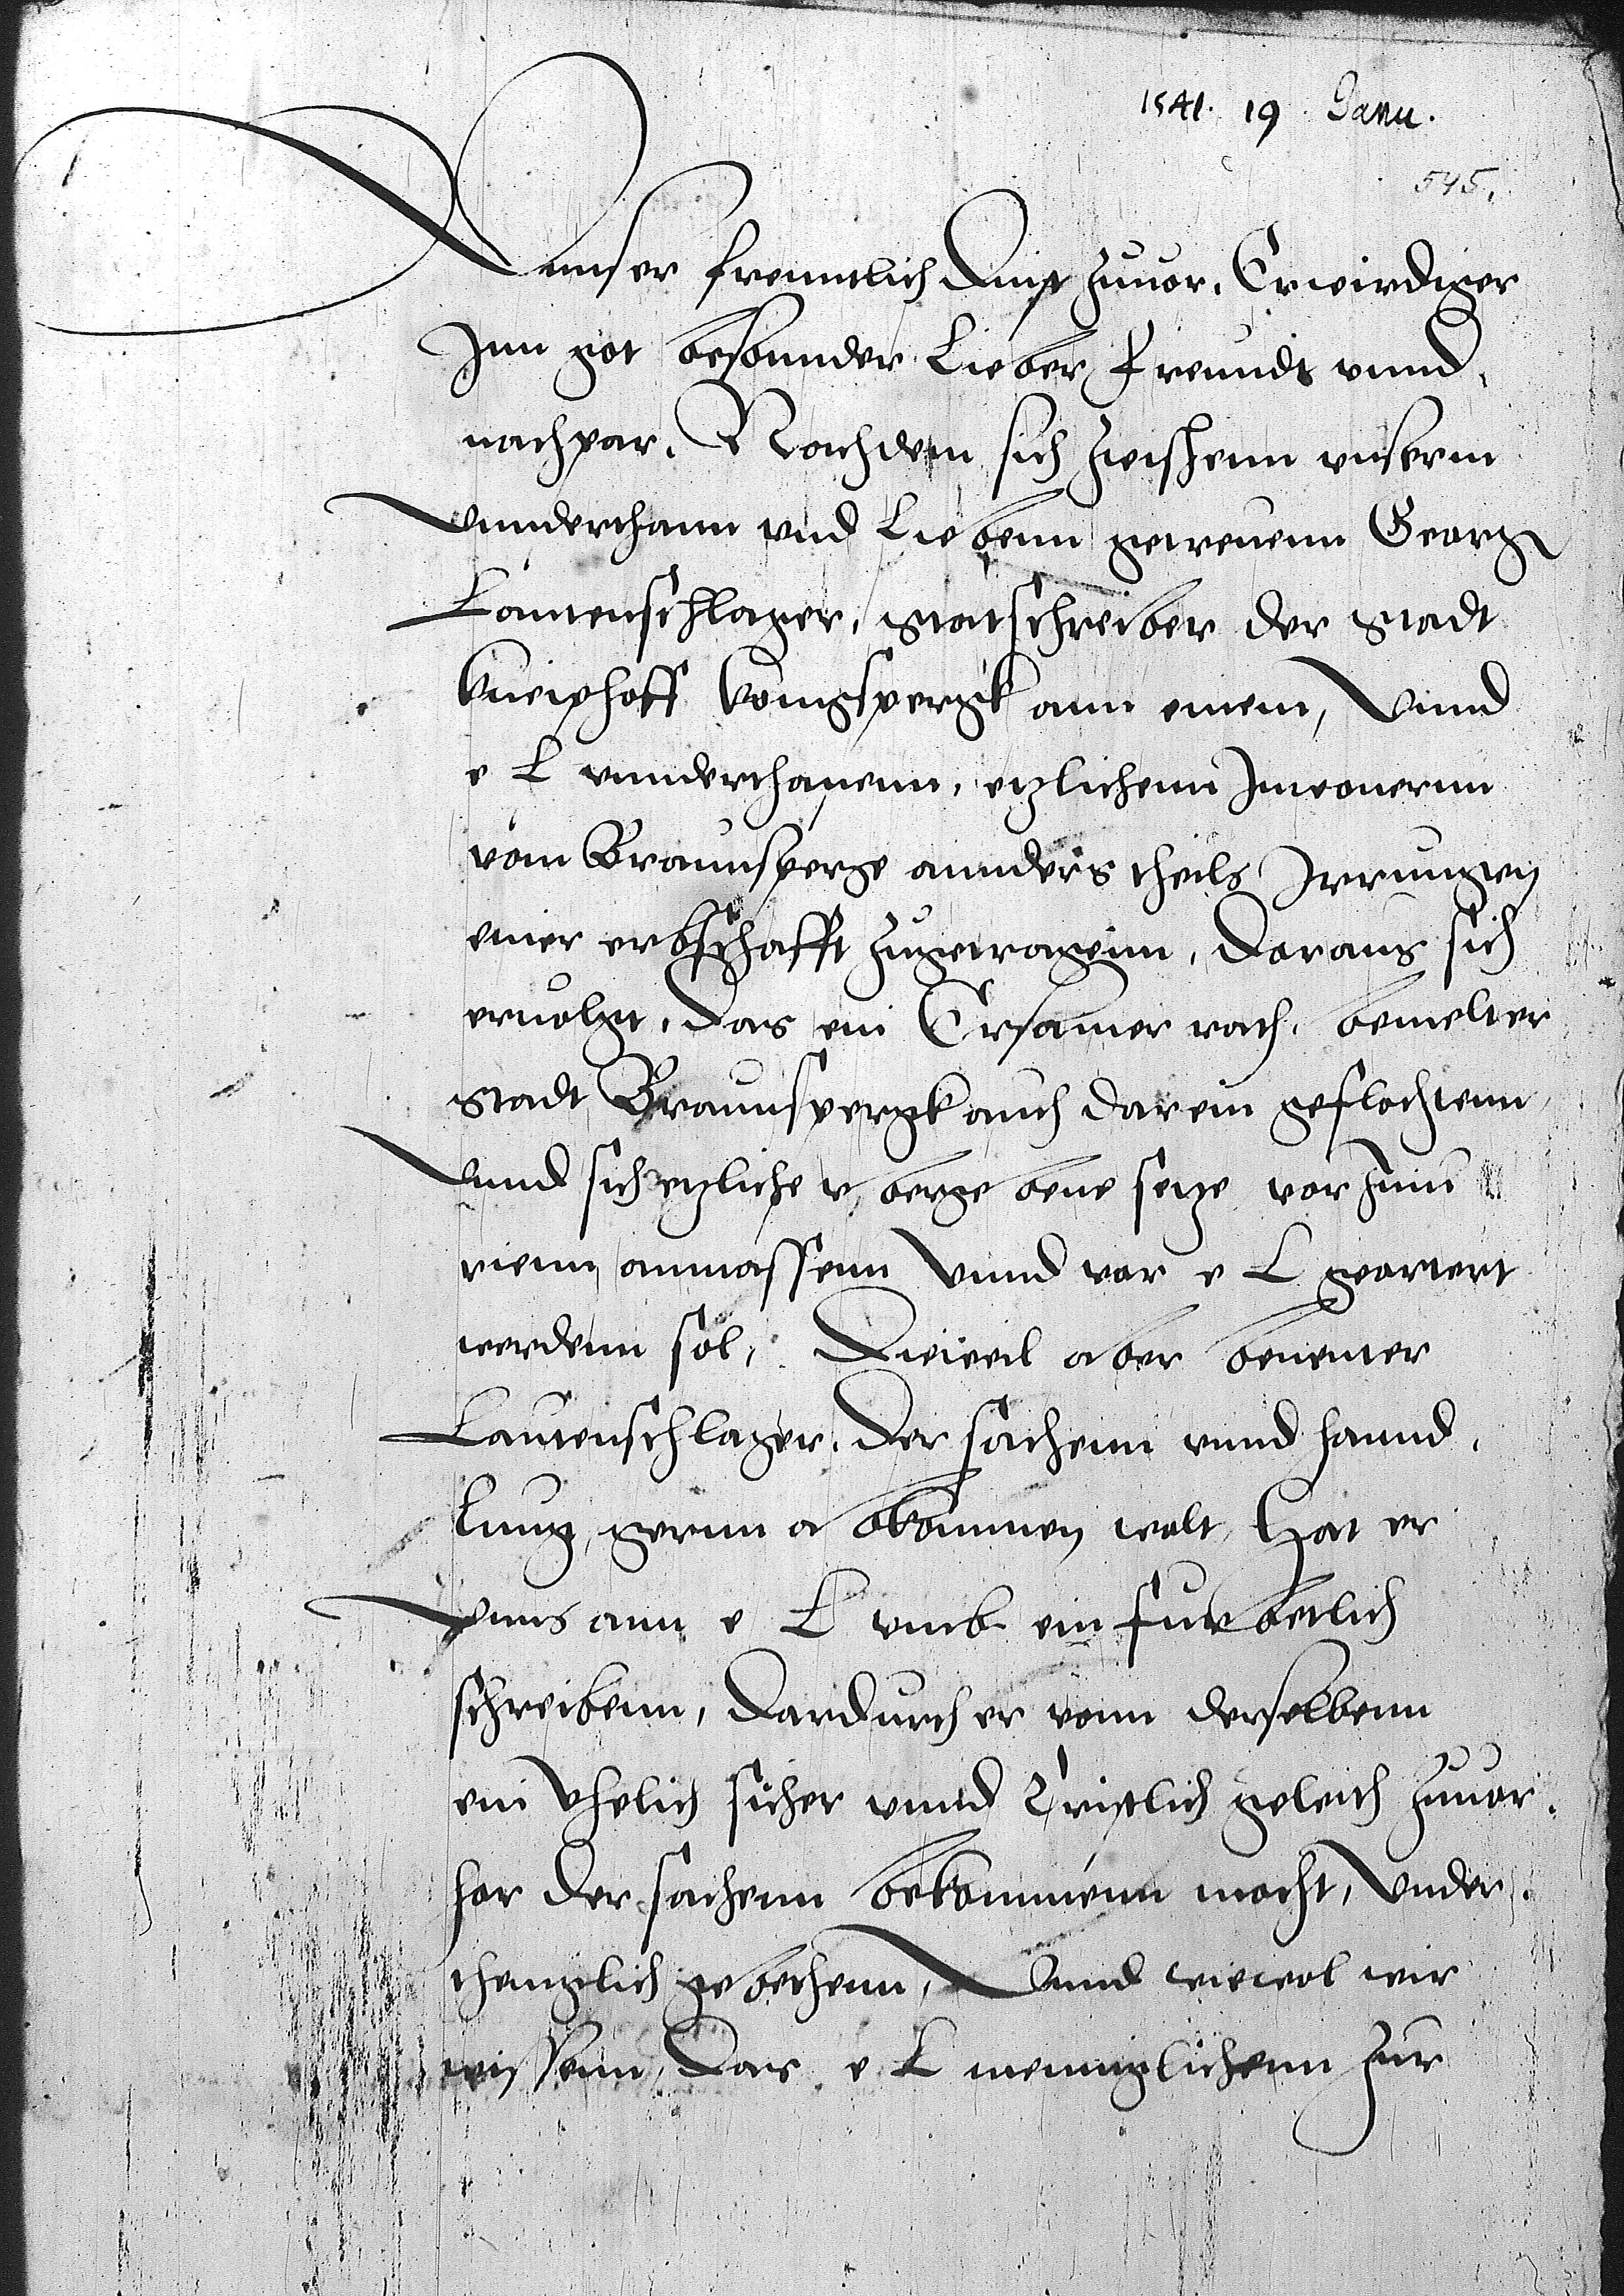 1541. 19 Janu.
545.
Vnnser freuntlich dinst zuuor. Erwirdiger
Inn got besonnder Lieber Freundt vnnd
nachpar. Nachdem sich zwischenn vnserm
Vnnderthann vnd Liebenn getreuenn Georg
Lautenschlager, statschreiber der Stadt
kneiphoff konigspergk ann einem, Vnnd
e L vnnderthanenn, etzlichenn Inwonernn
vom Braunsperge annders theils Irrungen
einer erbschafft zugetragenn, doraus sich
eruolgt, das ein Ersamer rath, bemelter
Stadt Braunspergk auch darein geflochtenn
Vnnd sich etzliche v bergebene setze vorzuu
rienn anmassenn Vnnd vor e L geortert
werdenn sol, Dieweil aber benenter
Lautenschlager, der sachenn vnnd hannd,
lung, gernn abkommen wolt, Hat er
Vnns ann e L vmb ein furbetlich
schreibenn, dardurch er vonn derselbenn
ein Vhelich sicher vnnd Cristlich geleith zuuor,
hor der sachenn bekommenn mocht, Vnder,
thenigklich gebethenn, Vnnd wiewol wir
wissenn, das e L menniglichenn zur